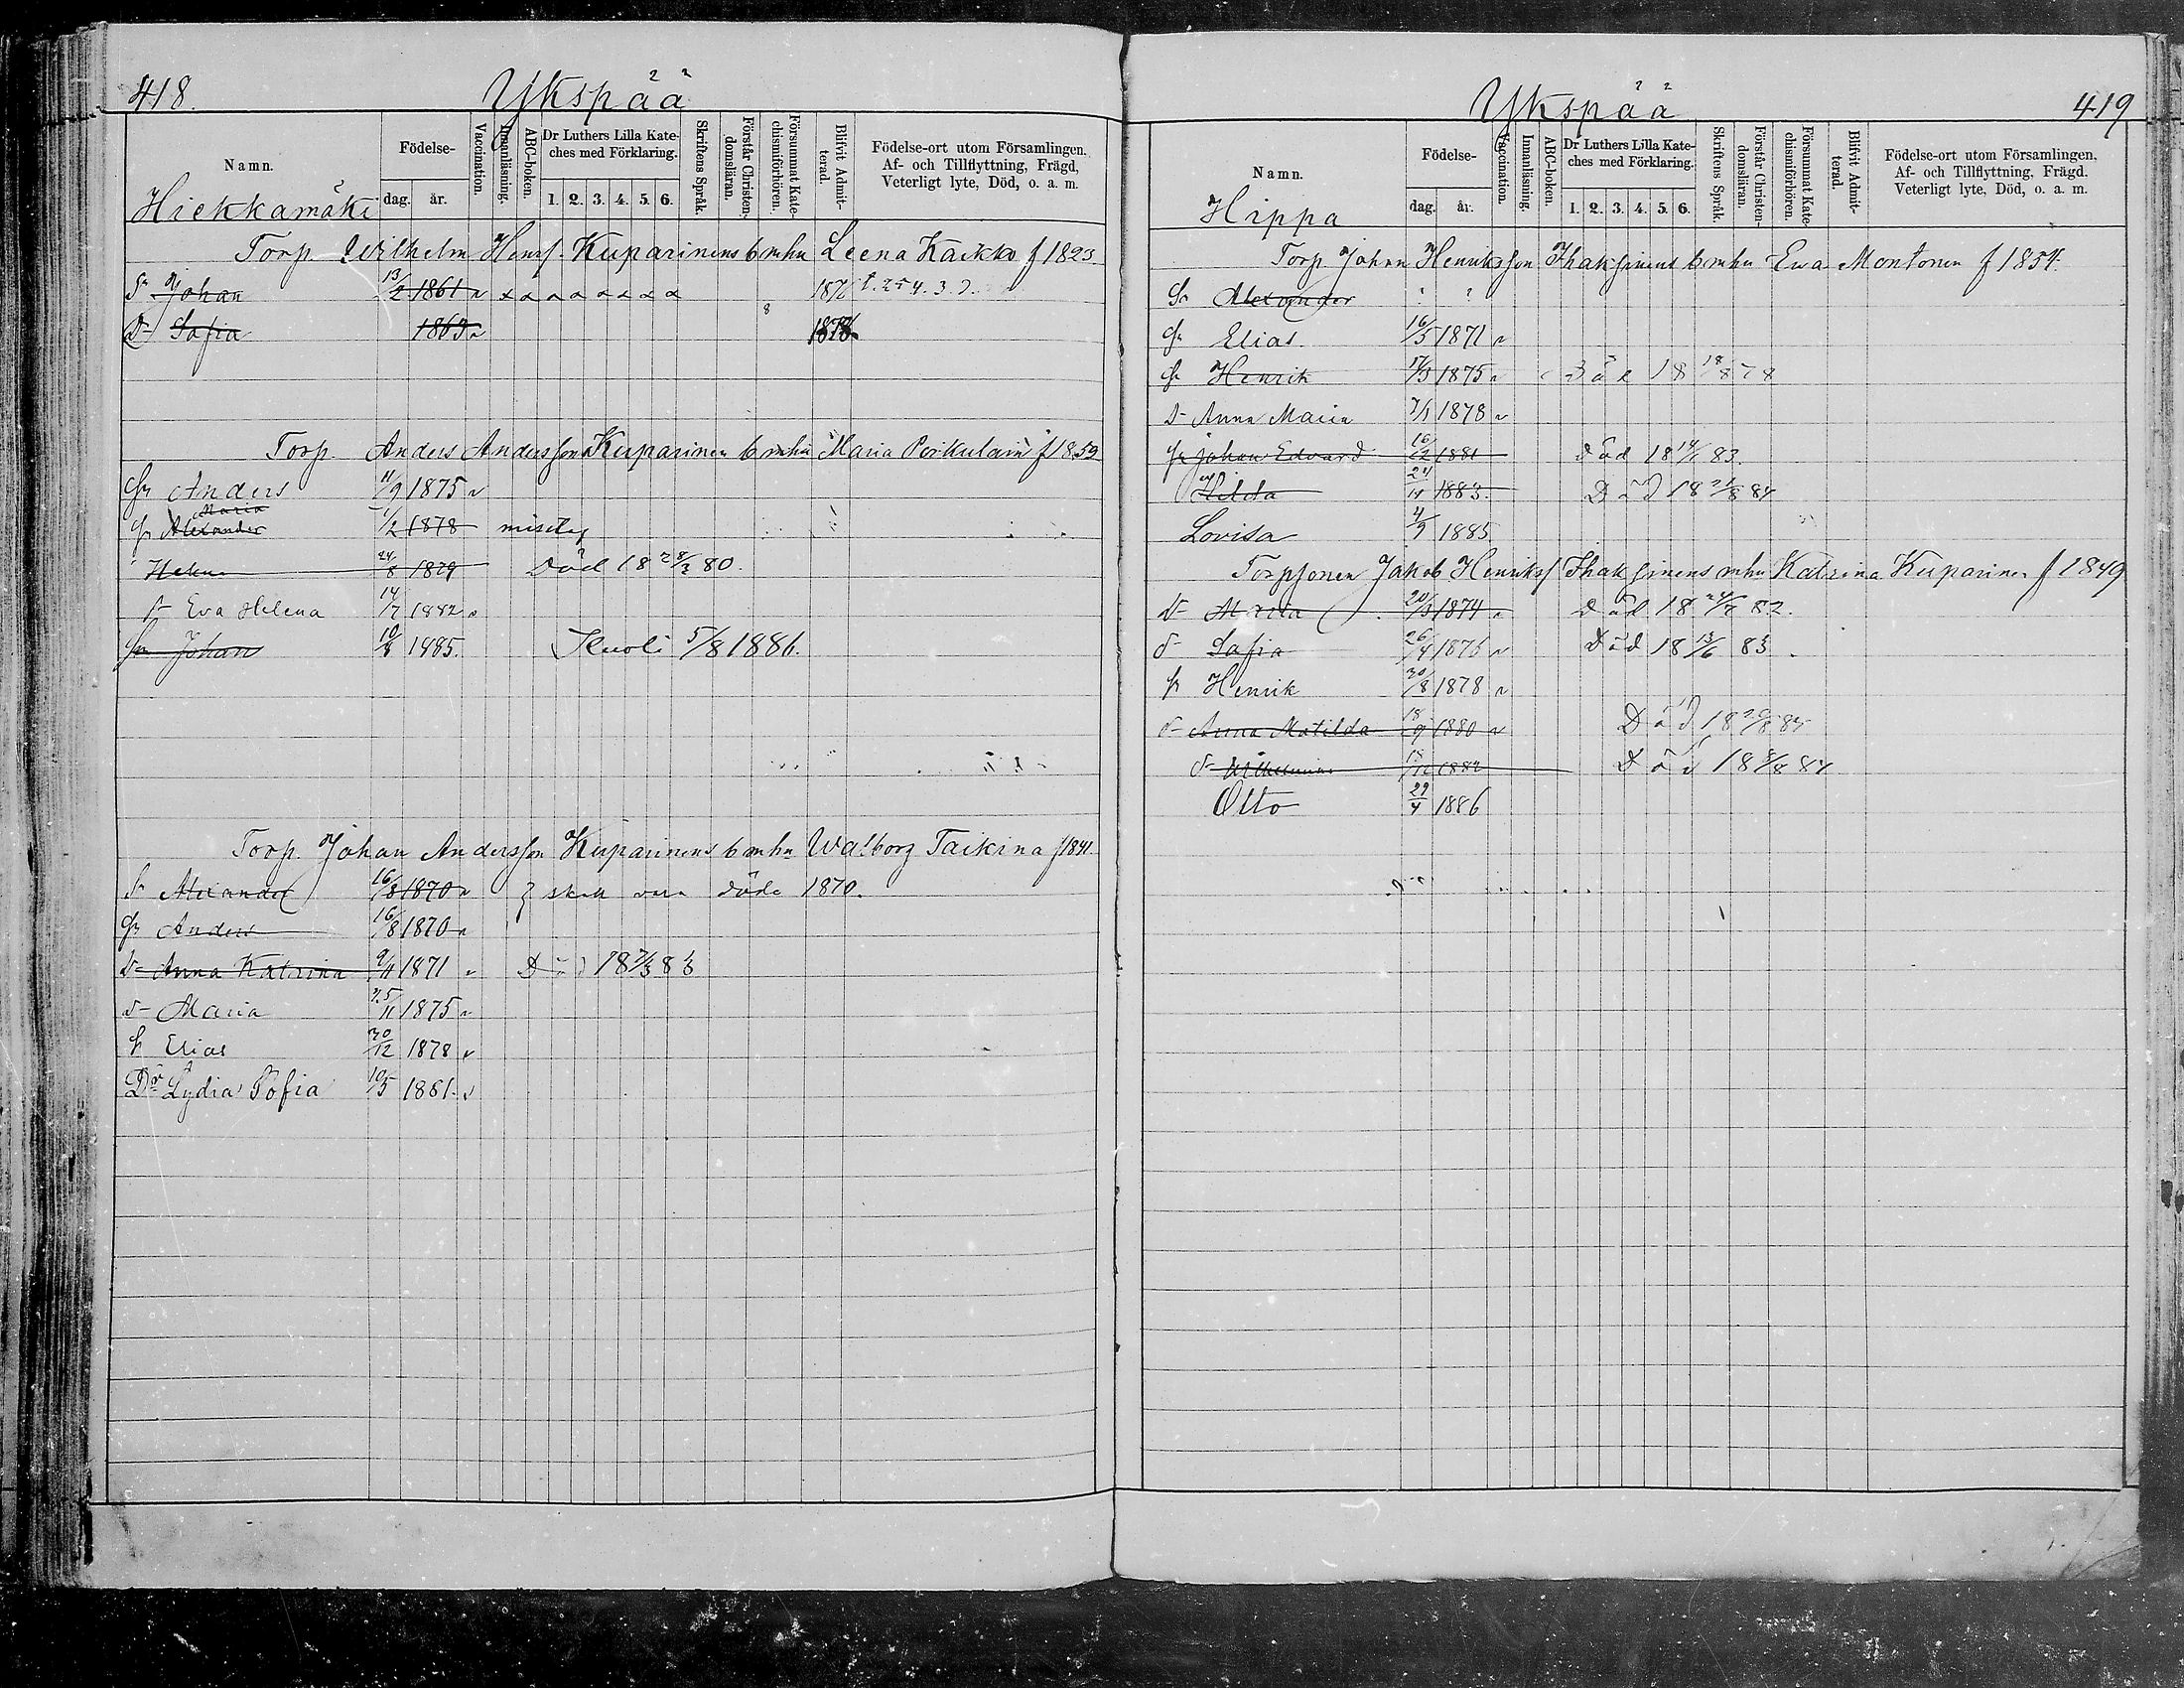 418. Ykspää
Namn. Födelse- dag. år. Vaccination. Innanläsning. ABC-boken. Dr Luthers Lilla Kateches med Förklaring. 1. 2. 3. 4. 5. 6. Skriftens Språk. Förstår Christendomsläran. Försummat Katechismiförhören. Blifvit Admitterad. Födelse-ort utom Församlingen. Af- och Tillflyttning, Frägd, Veterligt lyte, Död, o. a. m.
Hiekkamäki
Torp. Wilhelm Henrs. Kuparinens b mhu Leena Kaikko f 1823
Sn Johan 13/2 1861
Dr Safia 1863 1878
Torp. Anders Andersson Kuparinen b mhu Maria f 1859
Sn Anders 11/9 1875
Maria
Sn Alexander 1/2 1878 misstag
24/8 1879 Död 18 28/2 80.
Dr Eva Helena 14/7 1882
Sn Johan 10/8 1885. Kuoli 5/8 1886.
Torp. Johan Andersson Kuparinens b mhu Walborg Taikina f 1841
Sn Alexander 16/8 1870 } skall vara döde 1870.
Sn Anders 16/8 1870
Dr Anna Katrina 9/11 1871 Död 18 7/3 83
Dr Maria 25/11 1875
Sn Elias 30/12 1878
Dr Lydia Sofia 10/5 1881
Ykspää 419
Namn. Födelse- dag. år. Vaccination. Innanläsning. ABC-boken. Dr Luthers Lilla Kateches med Förklaring. 1. 2. 3. 4. 5. 6. Skriftens Språk. Förstår Christendomsläran. Försummat Katechismiförhören. Blifvit Admitterad. Födelse-ort utom Församlingen, Af- och Tillflyttning, Frägd. Veterligt lyte, Död, o. a. m.
Hippa
Torp. Johan Henriksson Ihaksinens b mhu Ewa Montonen f 1854.
Sn Alexander ? ?
Sn Elias 16/5 1871
Sn Henrik 17/3 1875 Död 18 18/8 78
Dr Anna Maria 7/1 1878
Sn Johan Edvard 16/2 1881 Död 18 14/1 83.
Hilda 1883. Död 18 21/8 84
Lovisa 4/9 1885
Torpsonen Jakob Henrikss Ihaksinens mhu Katrina Kuparinen f 1849
Dr Maria 20/3 1874 Död 18 24/7 82.
Dr Safia 26/4 1876 Död 18 13/6 83
Sn Henrik 30/8 1878
Dr Anna Matilda 18/9 1880 Död 18 20/8 84
Dr Wilhelmina 18/12 1882 Död 18 8/8 84
Otto 29/4 1886